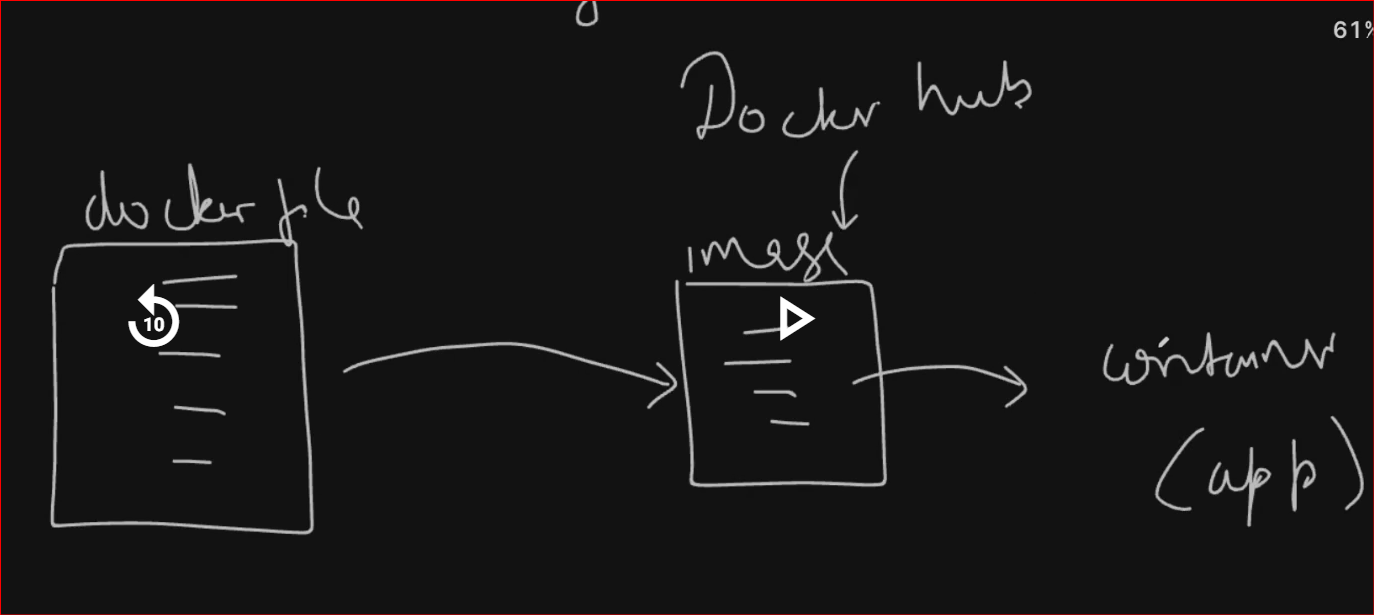 61%
Docker hub
dockerfile
image
10
container
(app)